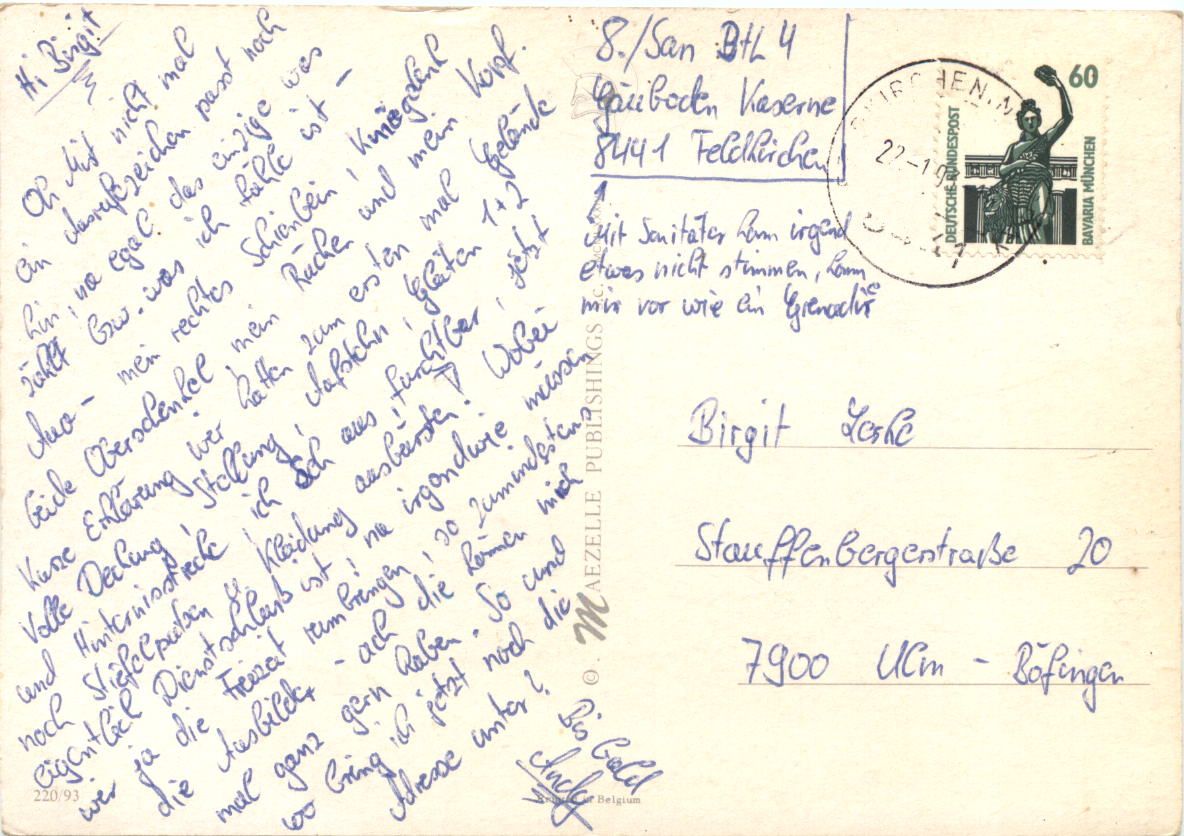 Hi Birgit
Oh Mit nicht mal
ein Ausrufezeichen passt noch
hin, na egal. das einzige was
zählt bzw. was ich fühle ist -
Aua - mein rechtes Schienbein, Kniegelenk
beide Oberschenkel, mein Rücken und mein Kopf.
Kurze Erklärung wir hatten zum ersten mal Gelände
Volle Deckung, Stellung, Aufstehn, Gleiten 1+2
und Hindernisstrecke, ich seh aus, furchtbar, jetzt
noch Stiefelputzen u. Kleidung ausbürsten! Wobei
eigentlich Dienstschluß ist, na irgendwie müssen
wir ja die Freizeit rumbringen, so zumindesten
die Ausbilder - ach die können mich
mal ganz gern haben. So und
wo bring ich jetzt noch die
Adresse unter?
Bis bald
Andy
8./San Btl 4
Gäuboden Kaserne
8441 Feldkirchen
Mit Sanitäter kann irgend
etwas nicht stimmen, komm
mir vor wie ein Grenadier
60
DEUTSCHE BUNDESPOST
BAVARIA MÜNCHEN
Birgit
Stauffenbergerstraße 20
7900 Ulm - Böfingen
© MAEZELLE PUBLISHINGS
220/93
Printed in Belgium